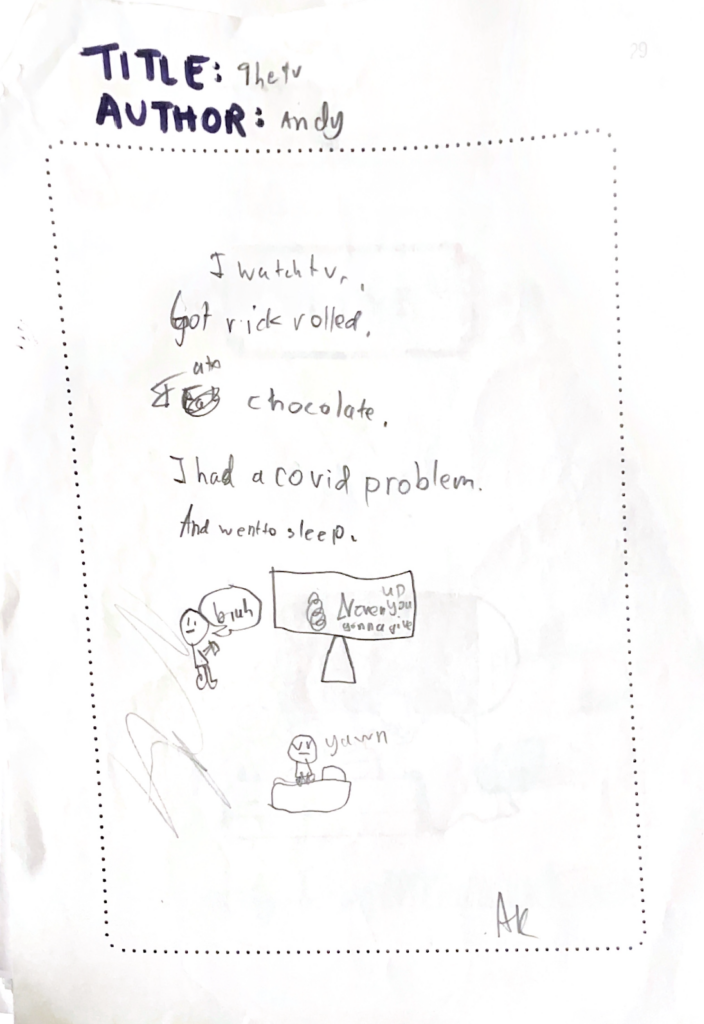 TITLE: The tv
AUTHOR: Andy
I watch tv.
Got rick rolled.
ate
I chocolate.
I had a covid problem.
And went to sleep.
bruh
up
Never you
gonna give
yawn
AK